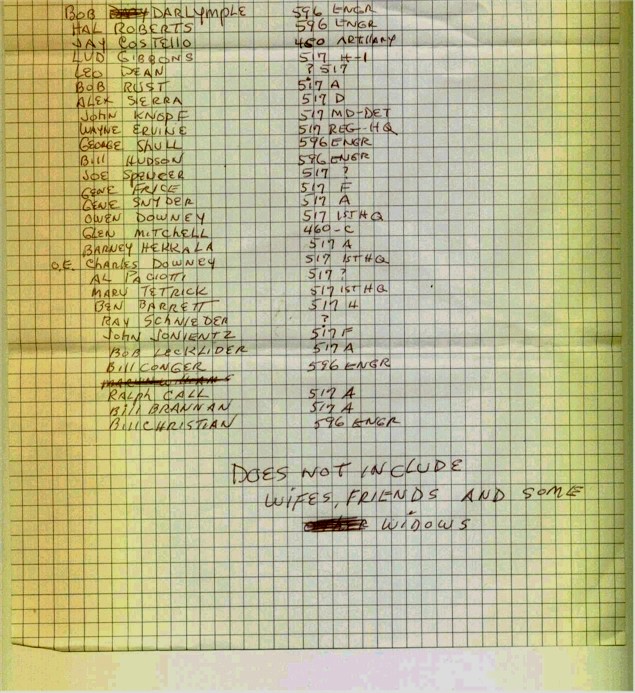 BOB DARLYMPLE 596 ENGR
HAL ROBERTS 596 ENGR
JAY COSTELLO 460 ARTILLARY
LUD GIBBONS 517 H-I
LEO DEAN ? 517
BOB RUST 517 A
ALEX SIERRA 517 D
JOHN KNOPF 517 MD-DET
WAYNE ERVINE 517 REG-HQ
GEORGE SHULL 596 ENGR
Bill HUDSON 596 ENGR
JOE SPENCER 517 ?
GENE FRICE 517 F
GENE SNYDER 517 A
OWEN DOWNEY 517 1ST HQ
GLEN MITCHELL 460-C
BARNEY HEKKALA 517 A
O.E. CHARLES DOWNEY 517 1ST HQ
AL PAGIOTTI 517 ?
MARV TETRICK 517 1ST HQ
BEN BARRETT 517 H
RAY SCHNIEDER ?
JOHN JONIENTZ 517 F
BOB LECKLIDER 517 A
Bill CONGER 596 ENGR
RALPH CALL 517 A
Bill BRANNAN 517 A
Bill CHRISTIAN 596 ENGR
DOES NOT INCLUDE
WIFES, FRIENDS AND SOME
WIDOWS